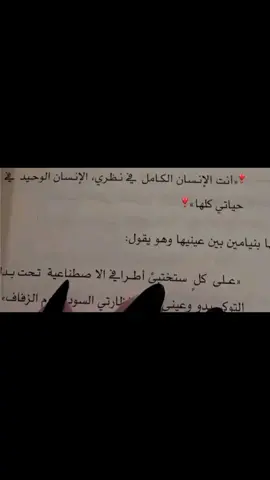 «انت الإنسان الكامل في نظري، الإنسان الوحيد في
حياتي كلها»
بنيامين بين عينيها وهو يقول:
«على كلٍ ستختبئ أطرافي الاصطناعية تحت
وعيني الزفاف»